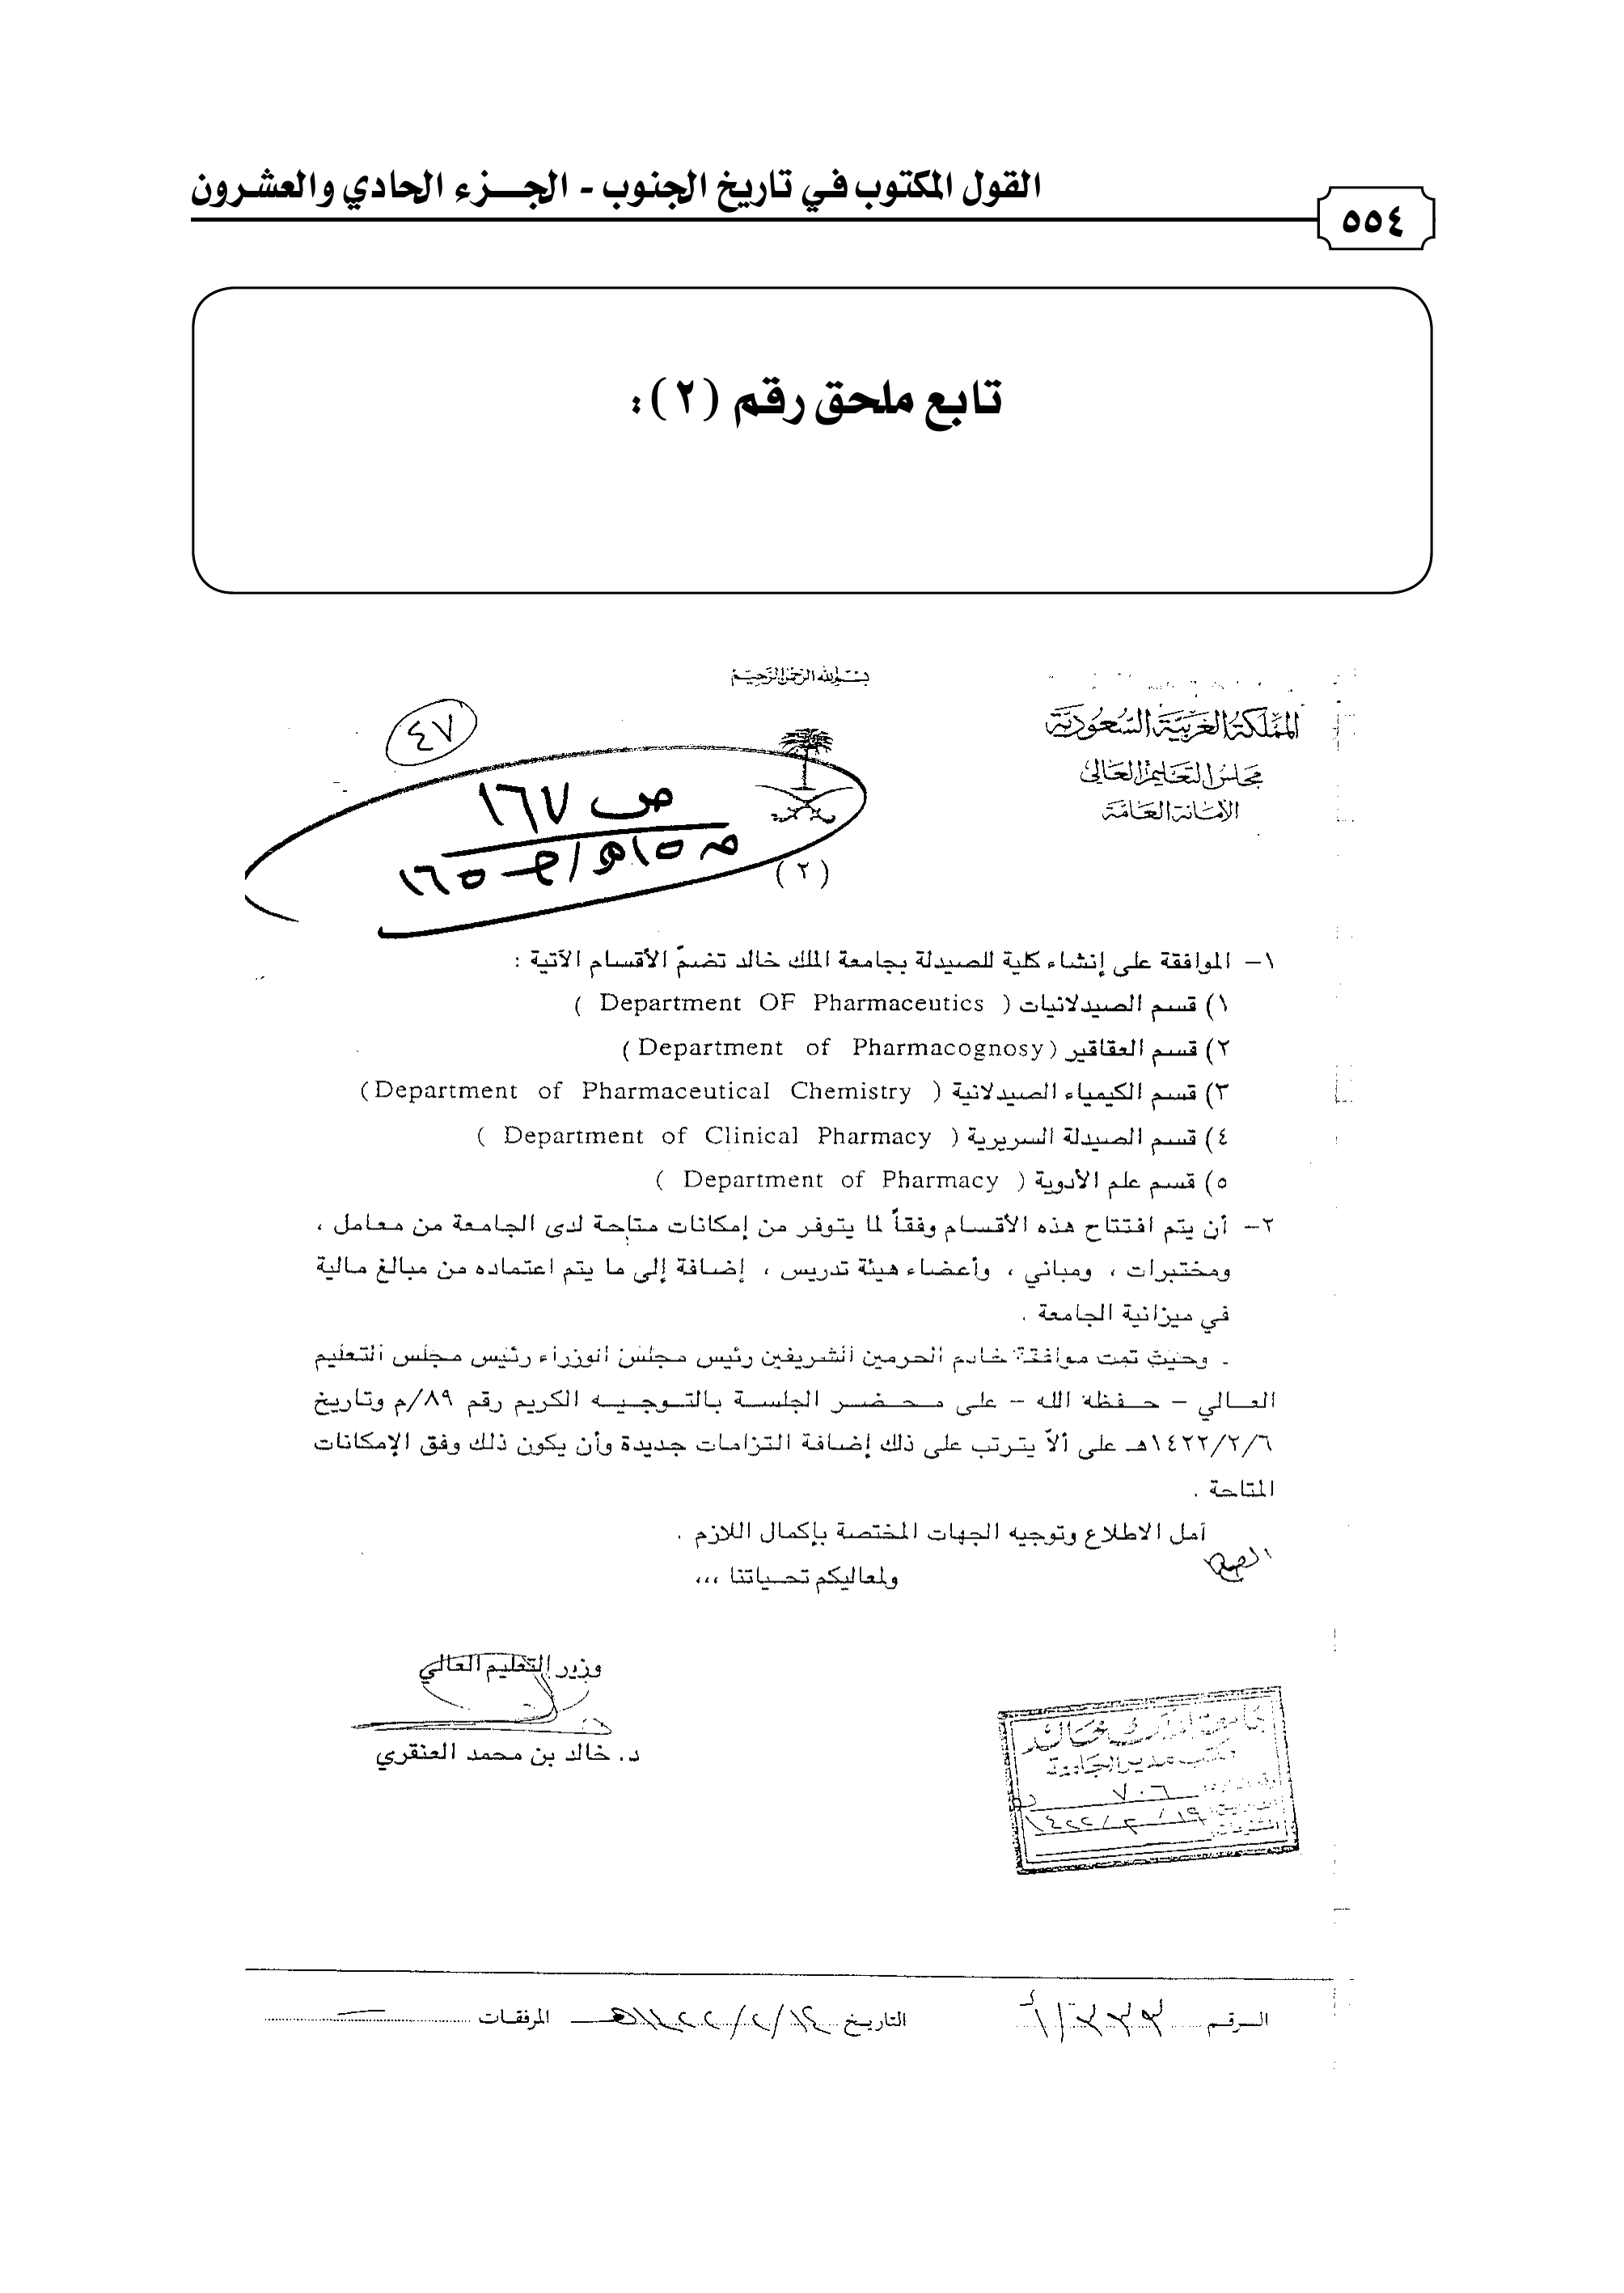 القول المكتوب في تاريخ الجنوب - الجـــزء الحادي والعشرون
٥٥٤
تابع ملحق رقم (٢):
بسم الله الرحمن الرحيم
المملكة العربية السعودية
مجلس التعليم العالي
الأمانة العامة
٤٧
ص ١٦٧
(٢)
١- الموافقة على إنشاء كلية للصيدلة بجامعة الملك خالد تضمّ الأقسام الآتية :
١) قسم الصيدلانيات ( Department OF Pharmaceutics )
٢) قسم العقاقير (Department of Pharmacognosy )
٣) قسم الكيمياء الصيدلانية ( Department of Pharmaceutical Chemistry)
٤) قسم الصيدلة السريرية ( Department of Clinical Pharmacy )
٥) قسم علم الأدوية ( Department of Pharmacy )
٢- أن يتم افتتاح هذه الأقسام وفقاً لما يتوفر من إمكانات متاحة لدى الجامعة من معامل ،
ومختبرات ، ومباني ، وأعضاء هيئة تدريس ، إضافة إلى ما يتم اعتماده من مبالغ مالية
في ميزانية الجامعة .
وحيث تمت موافقة خادم الحرمين الشريفين رئيس مجلس الوزراء رئيس مجلس التعليم
العــالي - حـفظه الله - على مـحـضـر الجلسـة بالتـوجـيـه الكريم رقم ٨٩/م وتاريخ
١٤٢٢/٢/٦هـ على ألاّ يترتب على ذلك إضافة التزامات جديدة وأن يكون ذلك وفق الإمكانات
المتاحة .
آمل الاطلاع وتوجيه الجهات المختصة بإكمال اللازم .
ولمعاليكم تحــياتنا ،،،
وزير التعليم العالي
د. خالد بن محمد العنقري
جامعة الملك خالد
مكتب مدير الجامعة
٦٠٧
الـرقـم
التاريـخ
المرفقـات